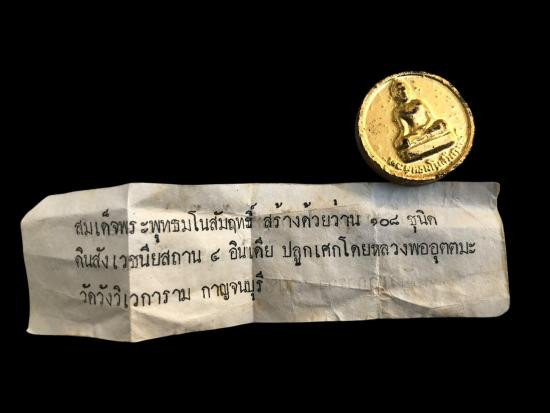 พระพุทธมโนสัมฤทธิ์
สมเด็จพระพุทธมโนสัมฤทธิ์ สร้างด้วยว่าน ๑๐๘ ชนิด
ดินสังเวชนียสถาน ๔ อินเดีย ปลูกเศกโดยหลวงพ่ออุตตมะ
วัดวังวิเวการาม กาญจนบุรี